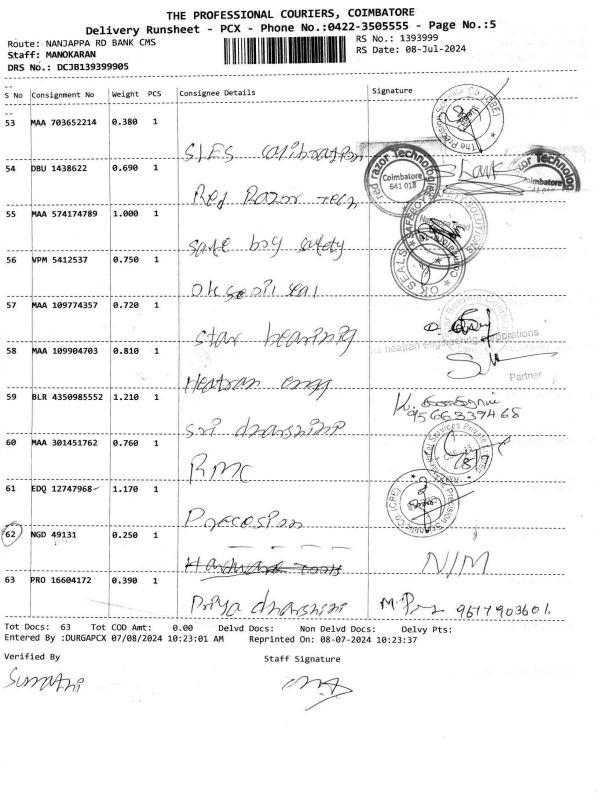 THE PROFESSIONAL COURIERS, COIMBATORE
Delivery Runsheet - PCX - Phone No.:0422-3505555 - Page No.:5
Route: NANJAPPA RD BANK CMS RS No.: 1393999
Staff: MANOKARAN RS Date: 08-Jul-2024
DRS No.: DCJB139399905
S No Consignment No Weight PCS Consignee Details Signature
53 MAA 703652214 0.380 1
SIES calibration
54 DBU 1438622 0.690 1
Red Razor Tech
red razor Technologies
Coimbatore
641 018
55 MAA 574174789 1.000 1
safe boy safety
56 VPM 5412537 0.750 1
OK SEALS
ok seoil seal
57 MAA 109774357 0.720 1
star bearing
58 MAA 109904703 0.810 1
heatran engineering corporations
Partner
Heatran engg
59 BLR 4350985552 1.210 1
9566339468
sri dharshini
60 MAA 301451762 0.760 1
RMC
61 EDQ 12747968 1.170 1
Precesion
62 NGD 49131 0.250 1
Hardware Tools
N/M
63 PRO 16604172 0.390 1
Priya dharshini
9677903601.
Tot Docs: 63 Tot COD Amt: 0.00 Delvd Docs: Non Delvd Docs: Delvy Pts:
Entered By :DURGAPCX 07/08/2024 10:23:01 AM Reprinted On: 08-07-2024 10:23:37
Verified By Staff Signature
Sumathi